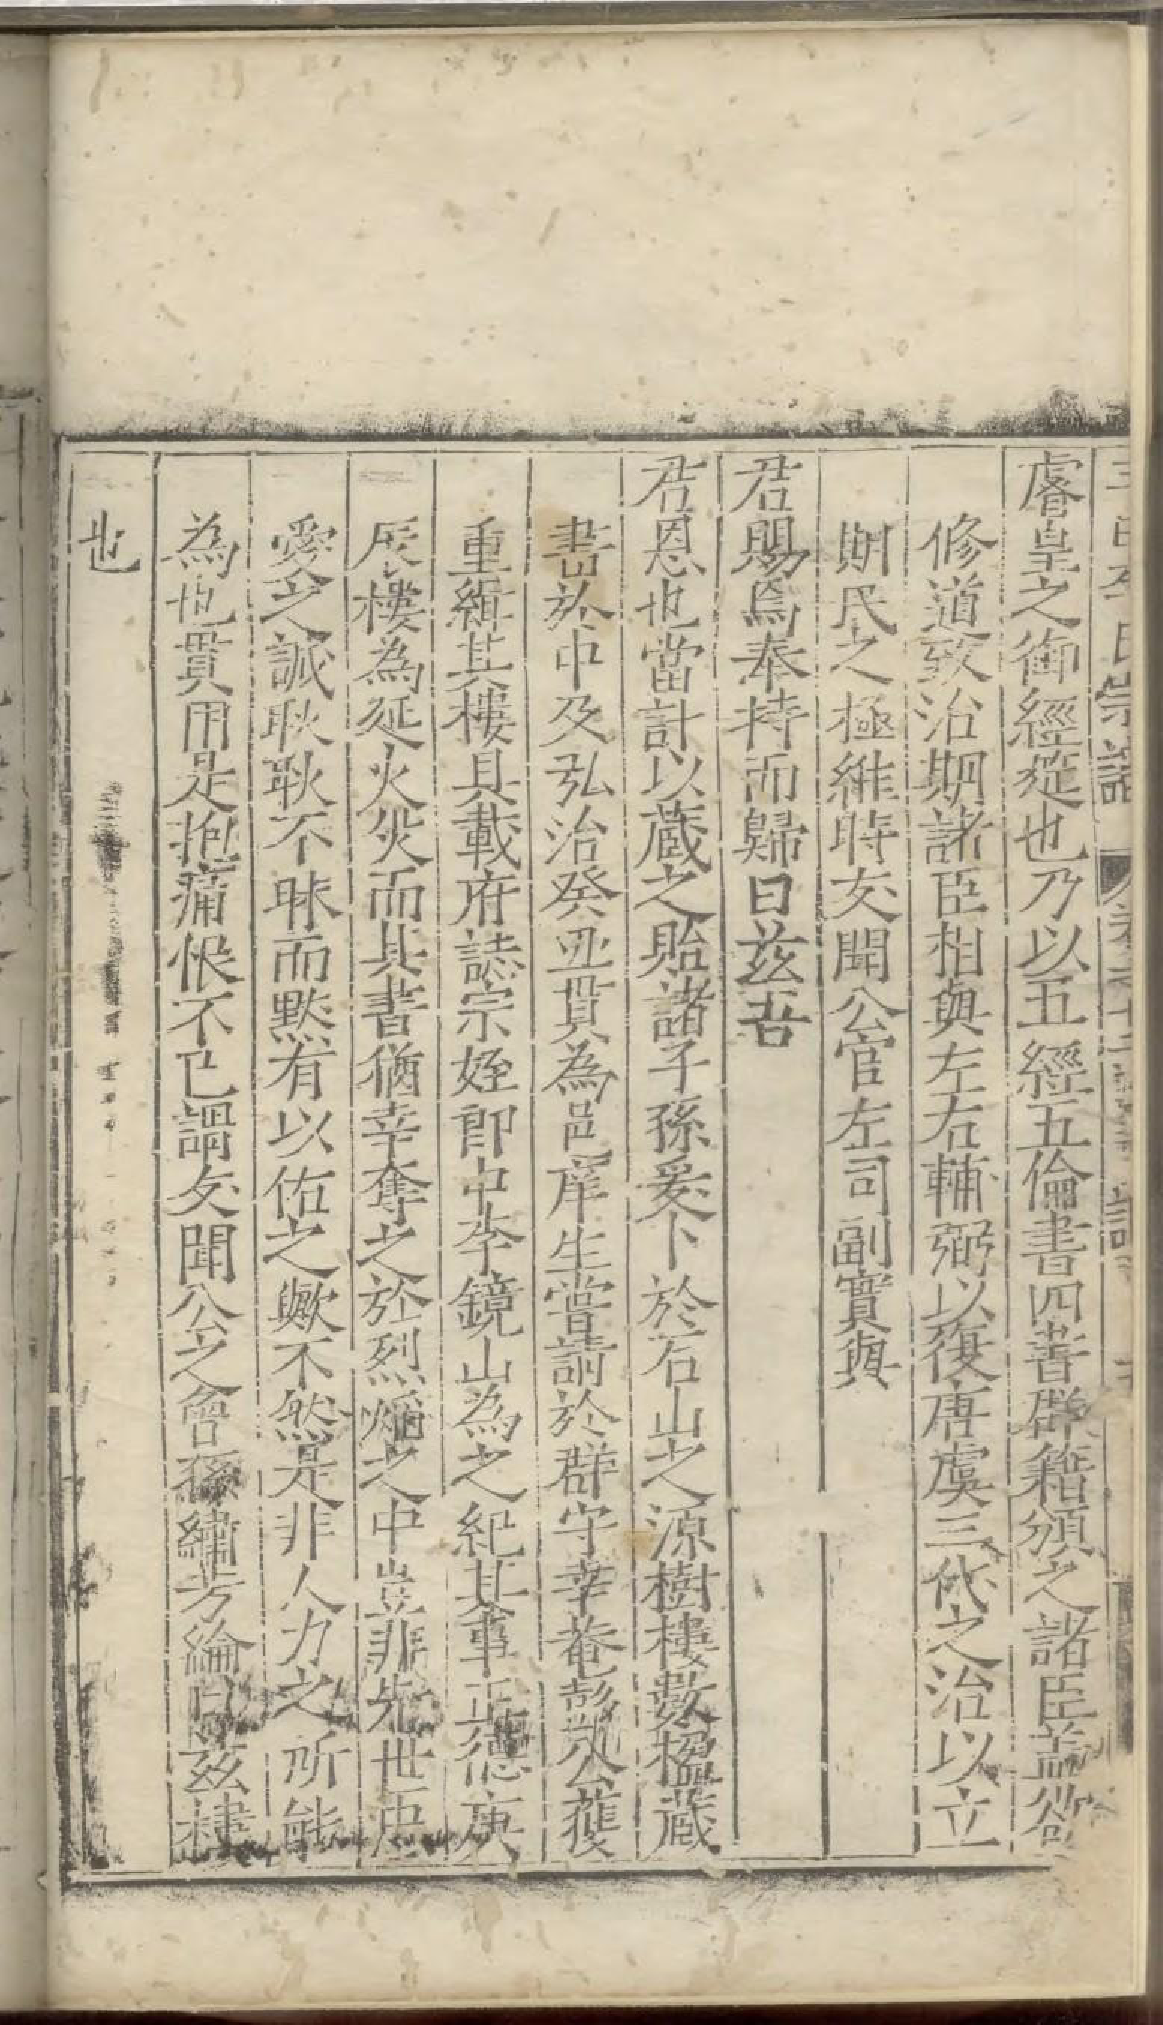 睿皇之御經筵也乃以五經五倫書四書群籍頒之諸臣盖欲
修道致治期諸臣相與左右輔弼以復唐虞三代之治以立
期民之極維時文聞公官左司副實與
君賜焉奉持而歸曰茲吾
君恩也當計以蔵之貽諸子孫爰卜於石山之源樹樓數楹蔵
書於中及弘治癸丑貫為邑庠生嘗請於群守幸菴彭公獲
重緝其樓具載府誌宗姪郎中李鏡山為之紀其事正德庚
辰樓為延火災而其書猶幸奪之於烈焰之中豈非先世忠
愛之誠耿耿不昧而默有以佑之歟不然是非人力之所能
為也貫用是抱痛恨不已謂文聞公之曾孫繡芳綸曰茲樓
也